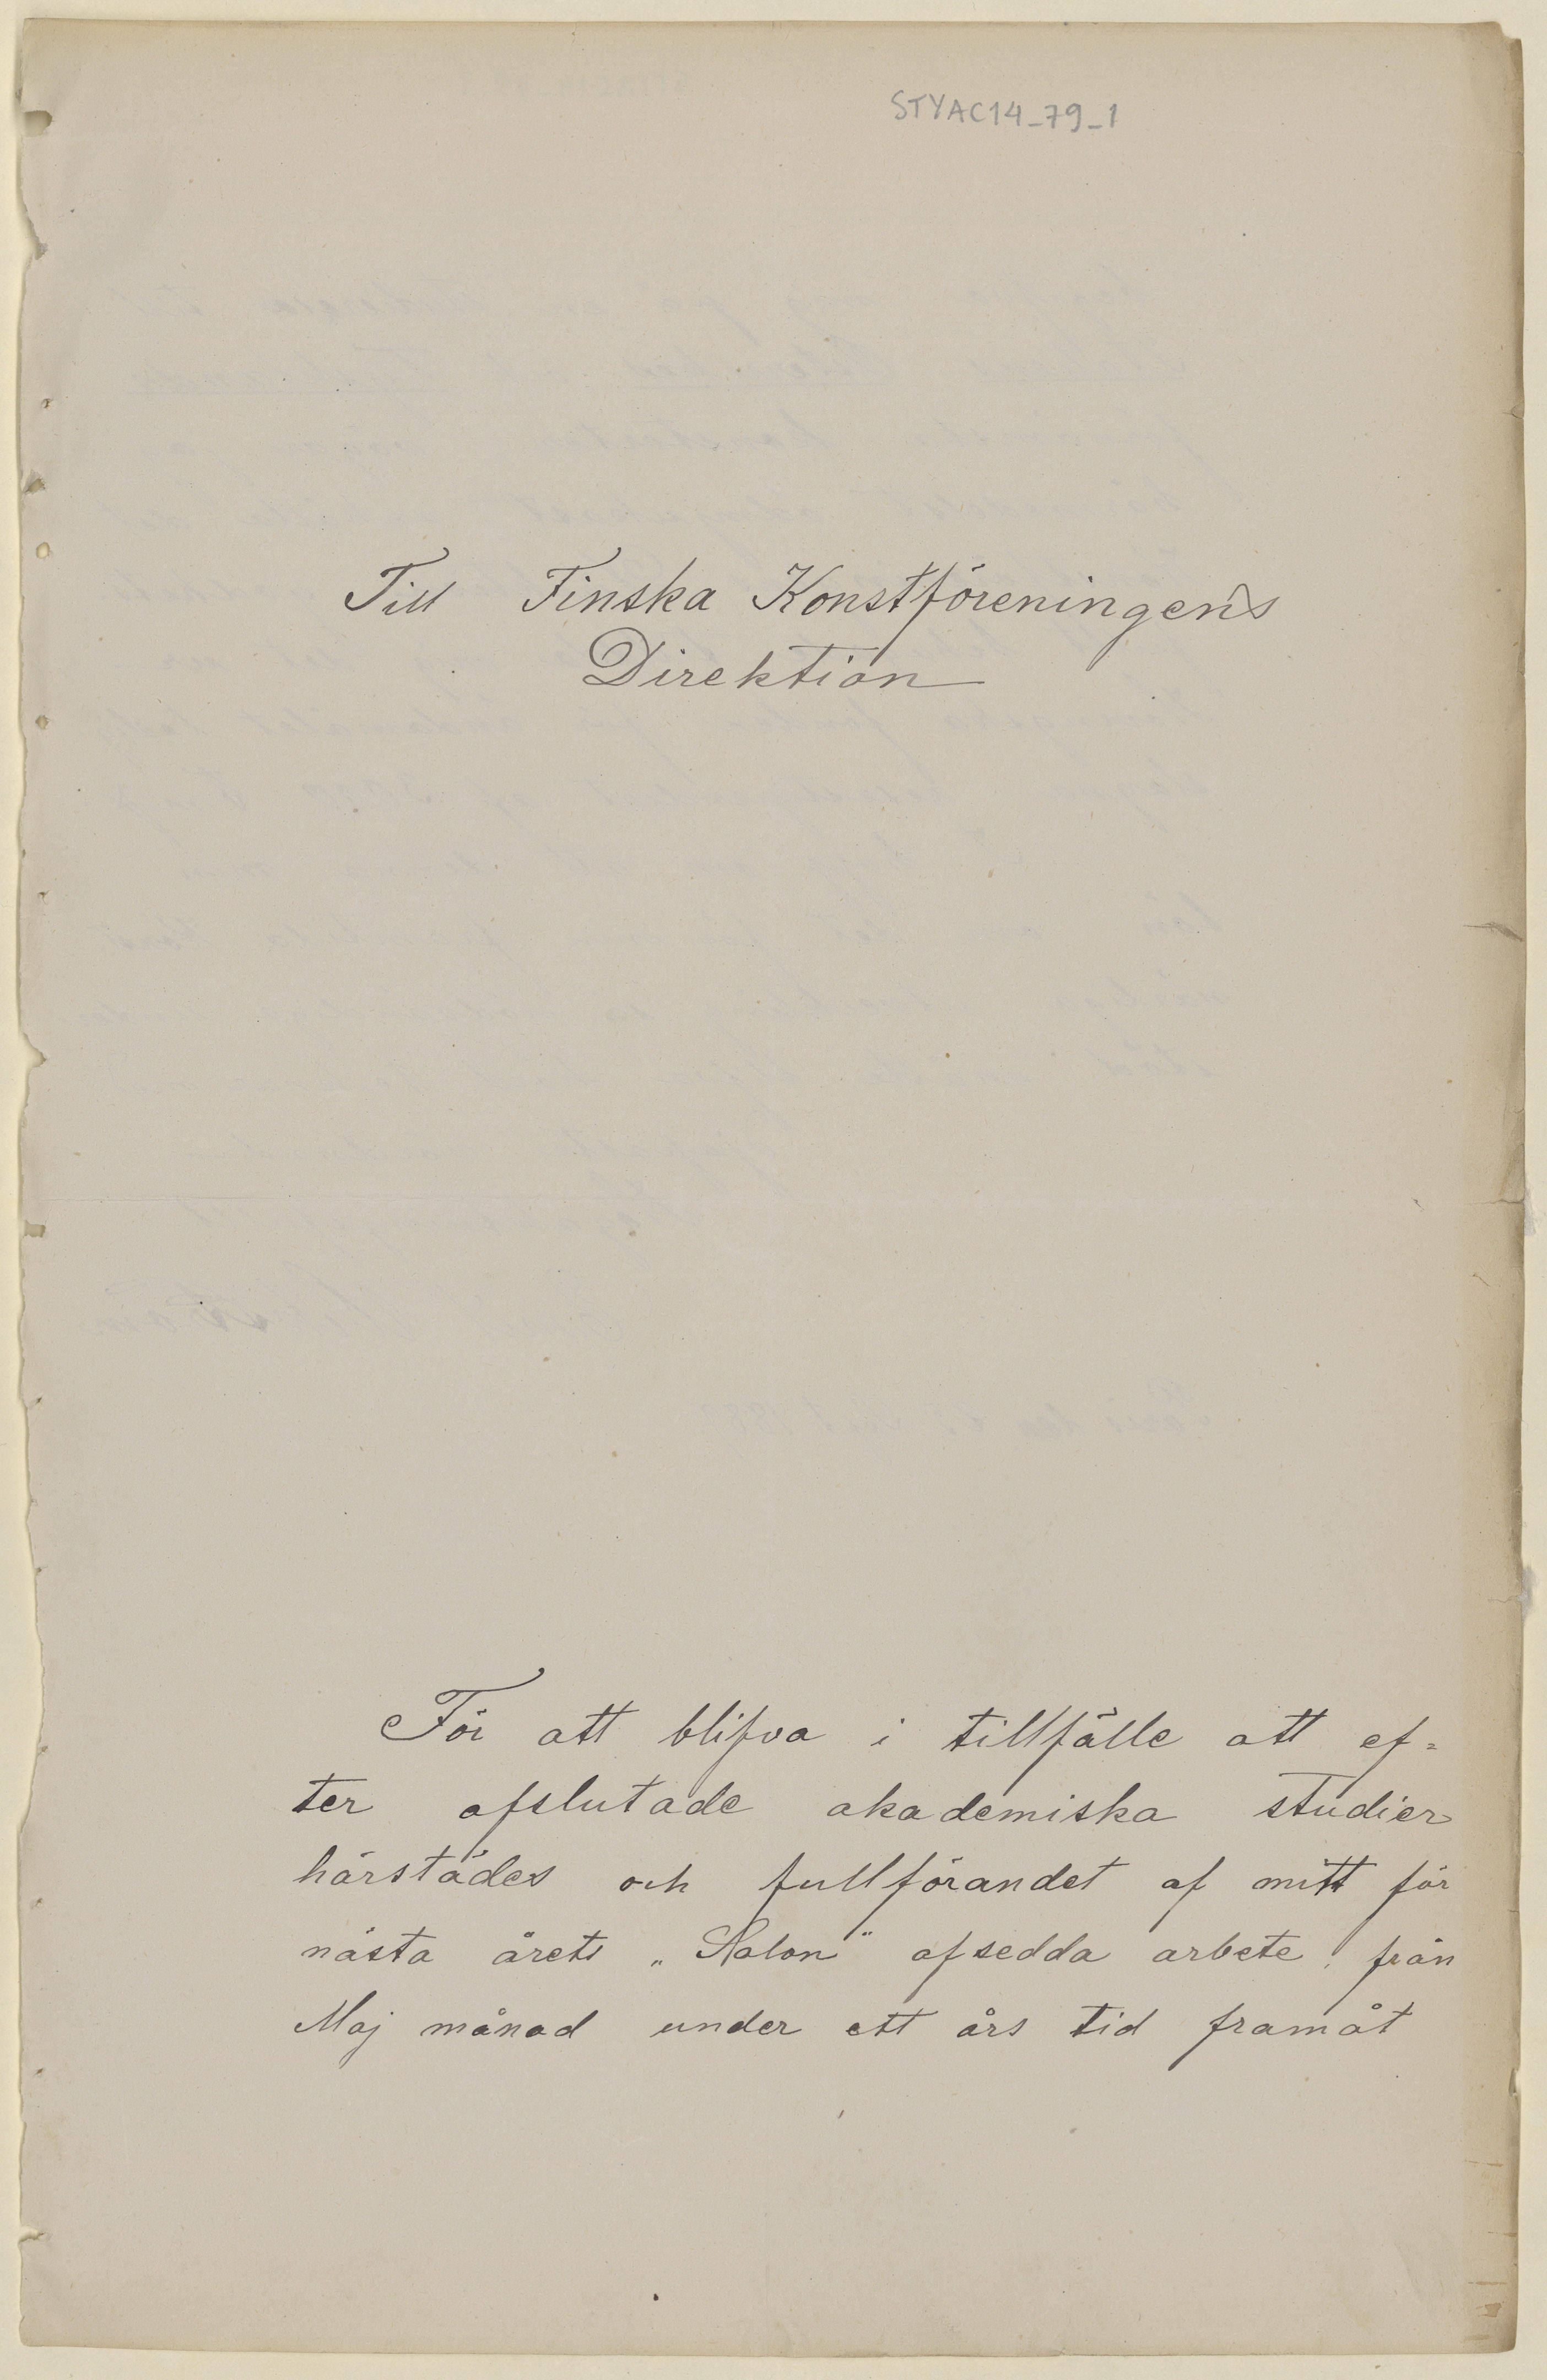 STYAC14_79_1
Till Finska Konstföreningens
Direktion
För att blifva i tillfälle att ef=
ter afslutade akademiska studier
härstädes och fullförandet af mitt för
nästa årets „Salon" afsedda arbete, från
Maj månad under ett års tid framåt